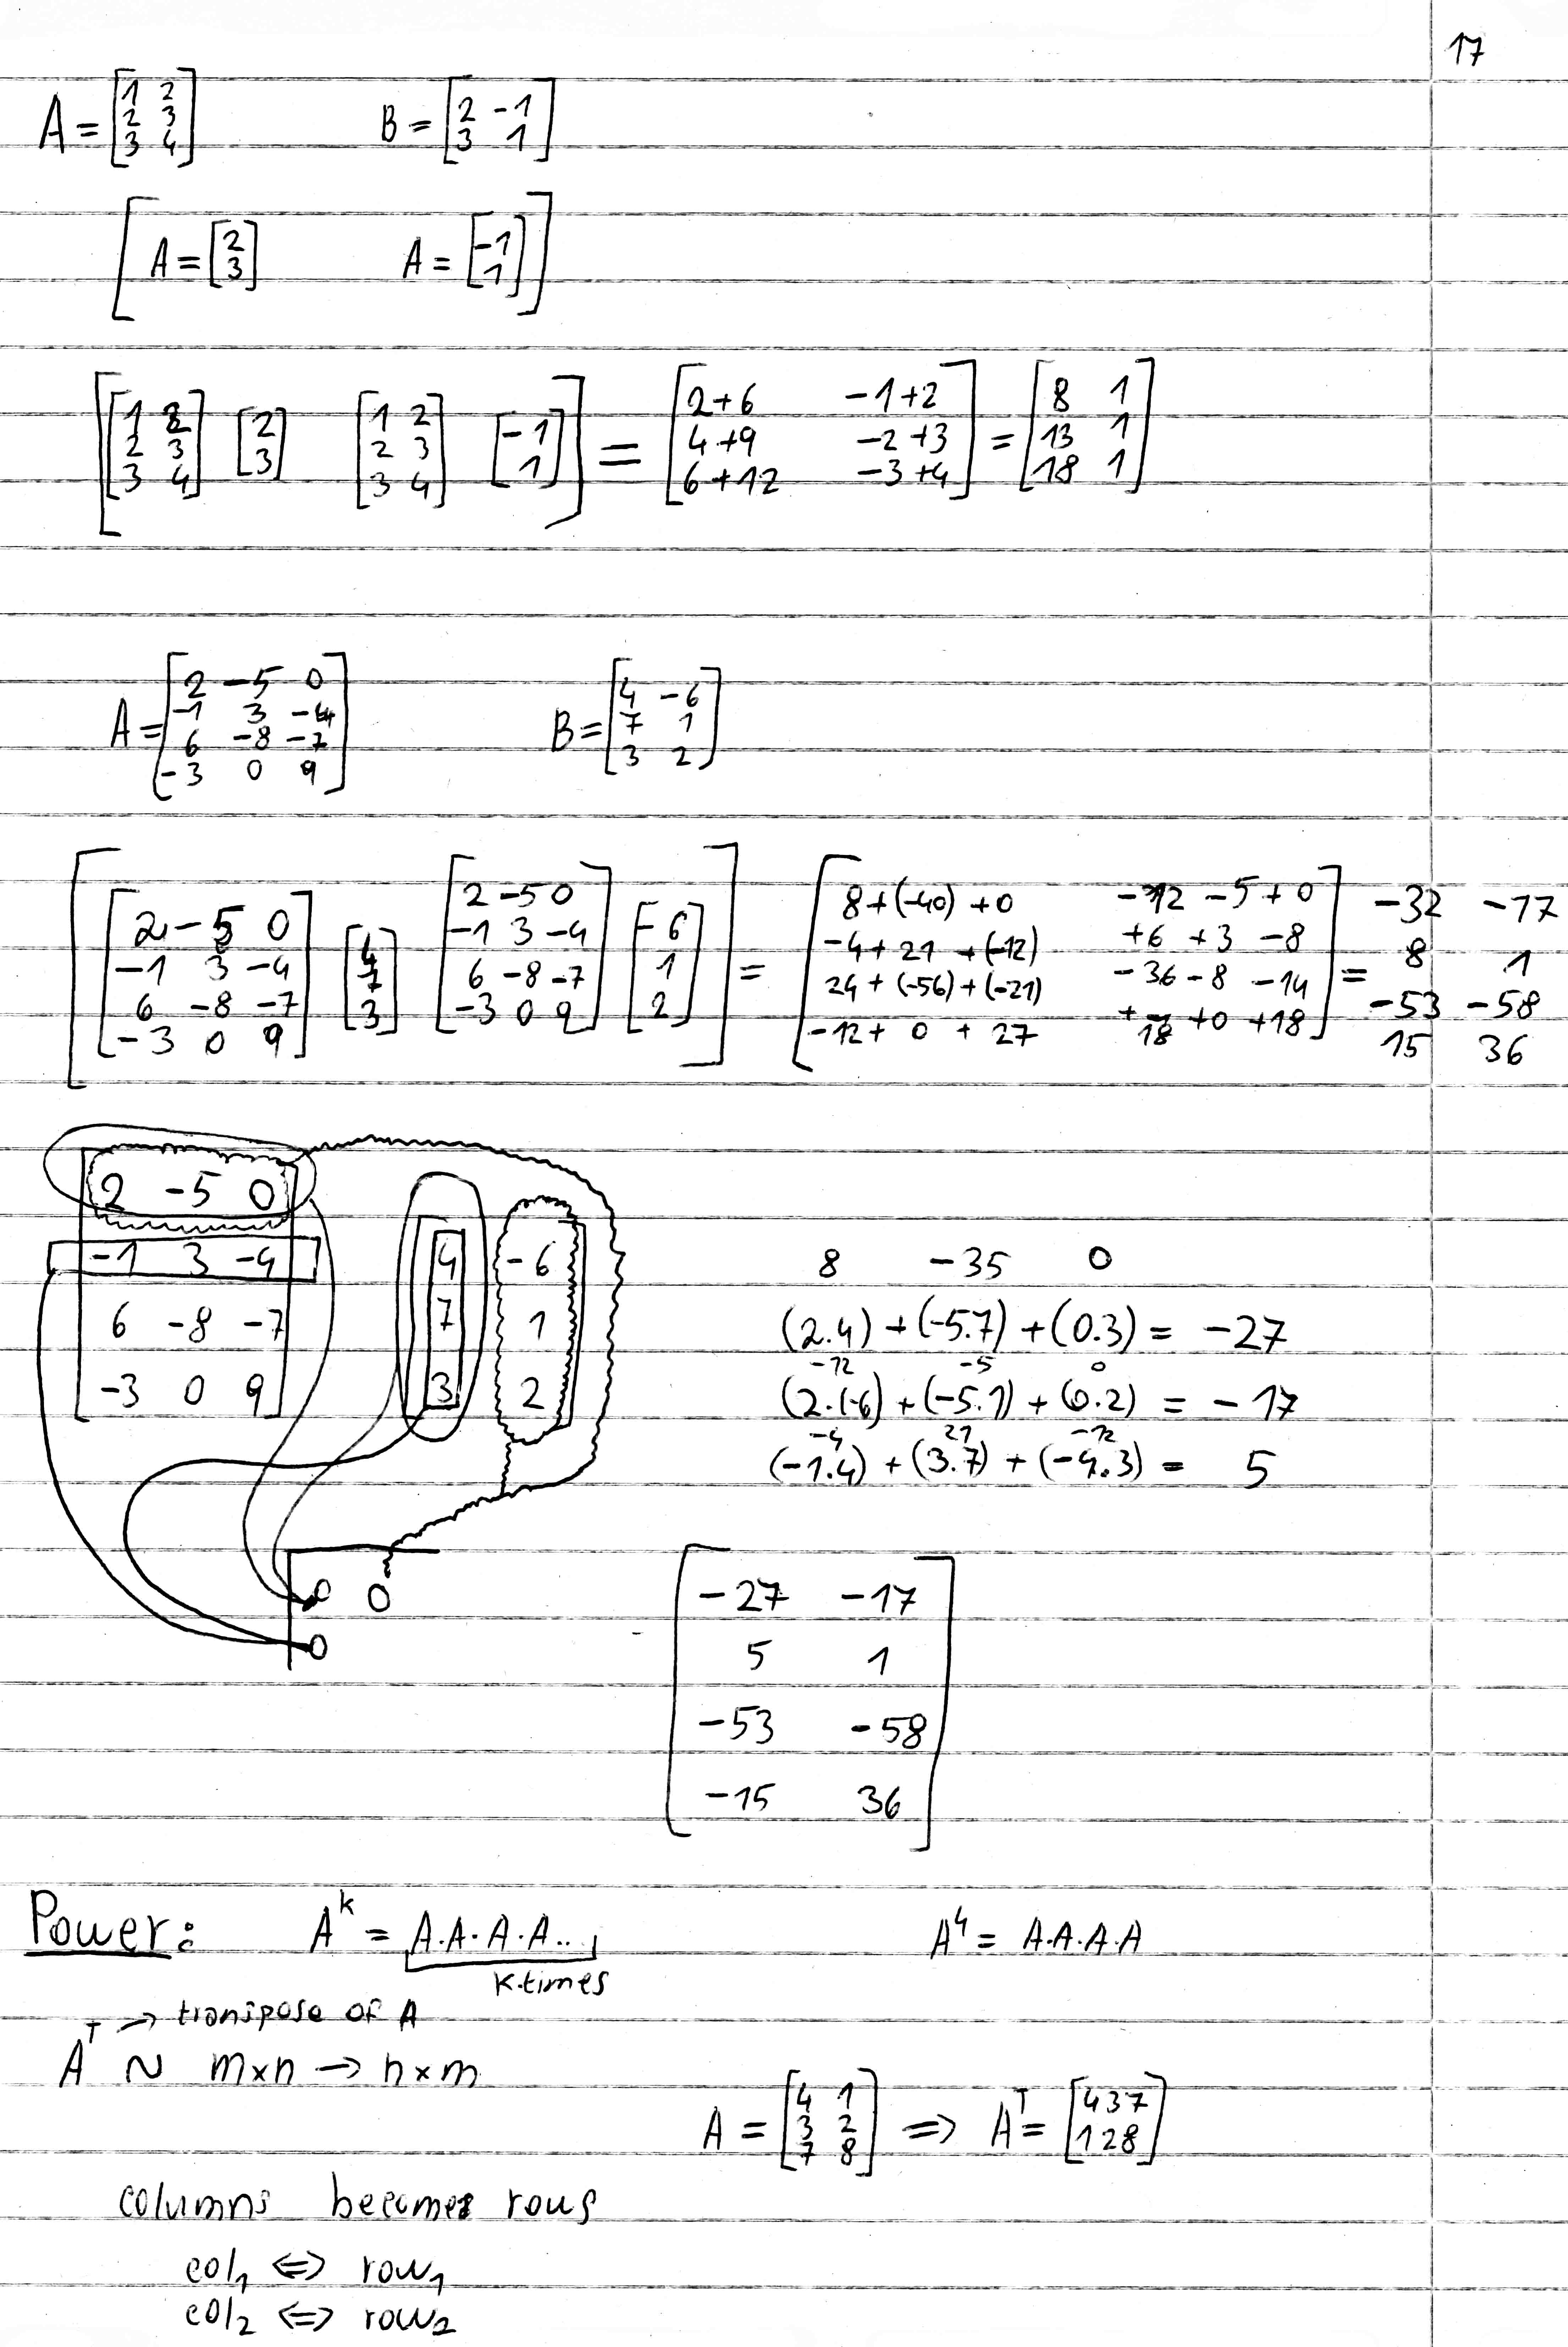 17
A = [1 2
2 3
3 4] B = [2 -1
3 1]
[A = [2
3] A = [-1
1]]
[[1 2
2 3
3 4] [2
3] [1 2
2 3
3 4] [-1
1]] = [2+6 -1+2
4+9 -2+3
6+12 -3+4] = [8 1
13 1
18 1]
A = [2 -5 0
-1 3 -4
6 -8 -7
-3 0 9] B = [4 -6
7 1
3 2]
[[2 -5 0
-1 3 -4
6 -8 -7
-3 0 9] [4
7
3] [2 -5 0
-1 3 -4
6 -8 -7
-3 0 9] [-6
1
2]] = [8+(-40)+0 -12 -5+0
-4+21+(-12) +6 +3 -8
24+(-56)+(-21) -36-8 -14
-12+ 0 + 27 +18 +0 +18] = -32 -17
8 1
-53 -58
15 36
2 -5 0
-1 3 -4
6 -8 -7
-3 0 9
4 -6
7 1
3 2
0 0
0
8 -35 0
(2.4) + (-5.7) + (0.3) = -27
-12 -5 0
(2.(-6) + (-5.1) + (0.2) = -17
-4 21 -12
(-1.4) + (3.7) + (-4.3) = 5
[-27 -17
5 1
-53 -58
-15 36]
Power: A^k = A.A.A.A.. A^4 = A.A.A.A
k-times
→ transpose of A
A^T ~ m×n → n×m
A = [4 1
3 2
7 8] => A^T = [4 3 7
1 2 8]
columns becomes rows
col1 <=> row1
col2 <=> row2